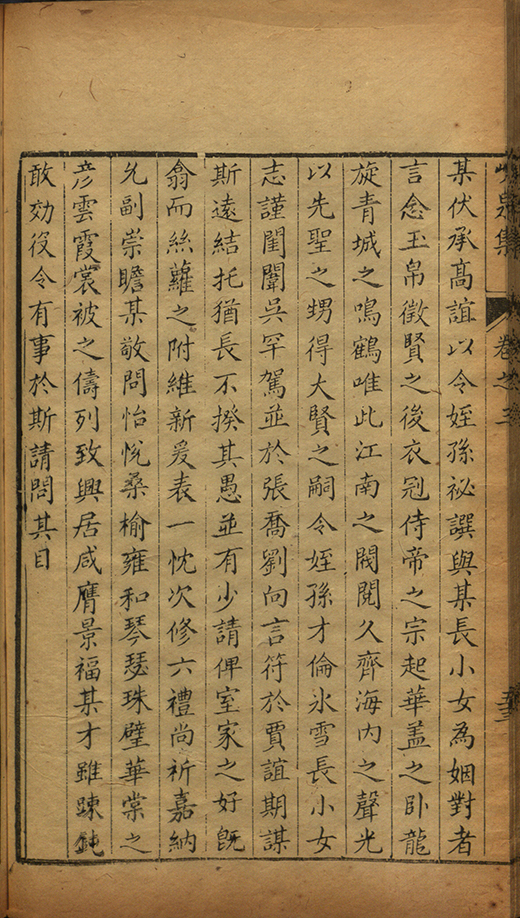 某伏承髙誼以令姪孫祕譔與某長小女為姻對者
言念玉帛徵賢之後衣冠侍帝之宗起華盖之卧龍
旋青城之鳴鶴唯此江南之閥閲久齊海内之聲光
以先聖之甥得大賢之嗣令姪孫才倫氷雪長小女
志謹閨闈吳罕駕並於張喬劉向言符於賈誼期謀
斯遠結托猶長不揆其愚並有少請俾室家之好旣
翕而絲蘿之附維新爰表一忱次修六禮尚祈嘉納
允副崇瞻某敬問怡悅桑榆雍和琴瑟珠璧華棠之
彦雲霞裳被之儔列致興居咸膺景福某才雖踈鈍
敢効役令有事於斯請問其目
泉集
卷之三